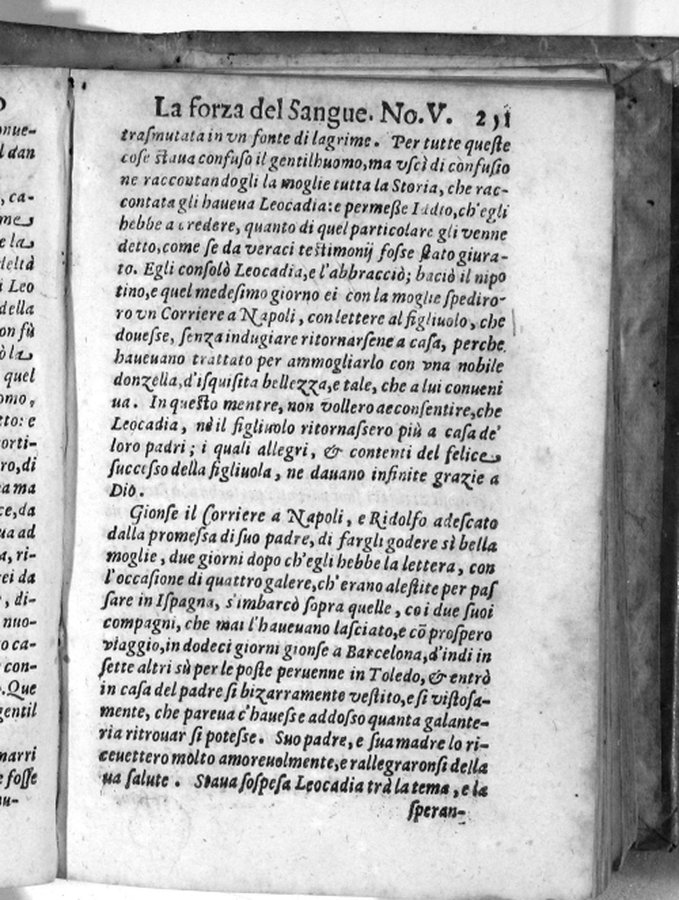 La forza del Sangue. No. V. 231
traſmutata in vn fonte di lagrime. Per tutte queſte
coſe ſtaua confuſo il gentilhuomo, ma vſcì di confuſio
ne raccontandogli la moglie tutta la Storia, che rac-
contata gli haueua Leocadia: e permeſſe Iddio, ch'egli
hebbe a credere, quanto di quel particolare gli venne
detto, come ſe da veraci teſtimonij foſſe ſtato giura-
to. Egli conſolò Leocadia, e l'abbracciò; baciò il nipo
tino, e quel medeſimo giorno ei con la moglie ſpediro-
ro vn Corriere a Napoli, con lettere al figliuolo, che
doueſse, ſenza indugiare ritornarſene a caſa, perche
haueuano trattato per ammogliarlo con vna nobile
donzella, d'iſquiſita bellezza, e tale, che a lui conueni
ua. In queſto mentre, non vollero aeconſentire, che
Leocadia, nè il figliuolo ritornaſsero più a caſa de'
loro padri; i quali allegri, & contenti del felice
ſucceſſo della figliuola, ne dauano infinite grazie a
Dio.
Gionſe il Corriere a Napoli, e Ridolfo adeſcato
dalla promeſſa di ſuo padre, di fargli godere sì bella
moglie, due giorni dopo ch'egli hebbe la lettera, con
l'occaſione di quattro galere, ch'erano aleſtite per paſ
ſare in Iſpagna, s'imbarcò ſopra quelle, co i due ſuoi
compagni, che mai l'haueuano laſciato, e cō proſpero
viaggio, in dodeci giorni gionſe a Barcelona, d'indi in
ſette altri sù per le poſte peruenne in Toledo, & entrò
in caſa del padre ſi bizarramente veſtito, e ſi viſtoſa-
mente, che pareua c'haueſse addoſso quanta galante-
ria ritrouar ſi poteſse. Suo padre, e ſua madre lo ri-
ceuettero molto amoreuolmente, e rallegraronſi della
ua ſalute. Staua ſoſpeſa Leocadia trà la tema, e la
ſperan-